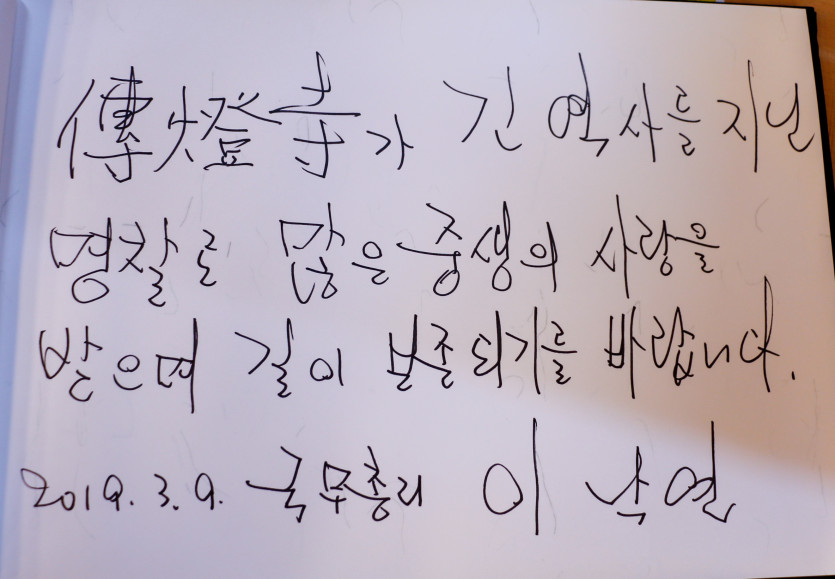 傳燈寺가 긴 역사를 지닌
명찰로 많은 중생의 사랑을
받으며 길이 보존되기를 바랍니다.
2019. 3. 9. 국무총리 이낙연